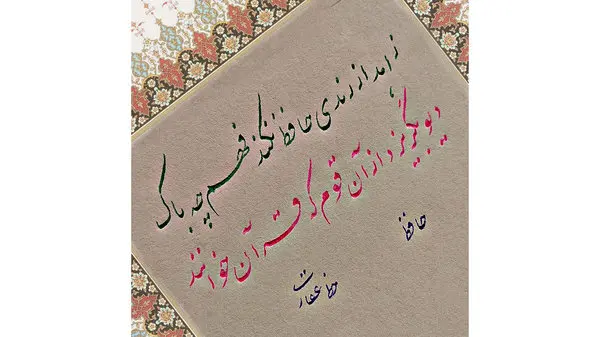 زاهد از رندی حافظ نکند فهم چه باک
دیو بگریزد از آن قوم که قرآن خوانند
حافظ